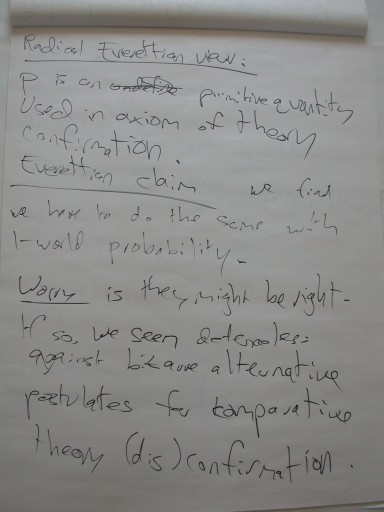 Radical Everettian view:
P is an primitive quantity
Used in axiom of theory
confirmation.
Everettian claim we find
we have to do the same with
1-world probability.
Worry is they might be right.
If so, we seem defenceless
against bizarre alternative
postulates for comparative
theory (dis)confirmation.